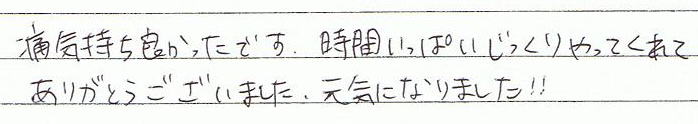 痛気持ち良かったです. 時間いっぱいじっくりやってくれて
ありがとうございました. 元気になりました!!